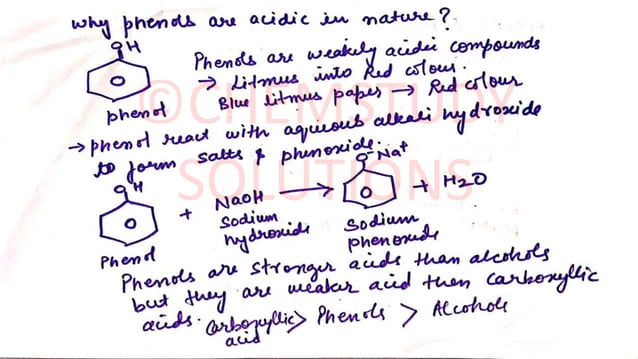 why phenols are acidic in nature?
OH
phenol
Phenols are weakely acidic compounds
→ Litmus into Red colour.
Blue litmus paper → Red colour
→ phenol react with aqueous alkali hydroxide
to form salts & phenoxide.
OH
Phenol
+
NaOH
Sodium
hydroxide
→
O⁻Na⁺
Sodium
phenoxide
+ H2O
Phenols are stronger acids than alcohols
but they are weaker acid then carboxyllic
acids. Carboxyllic acid > Phenols > Alcohols
©CHEMSTUDY
SOLUTIONS